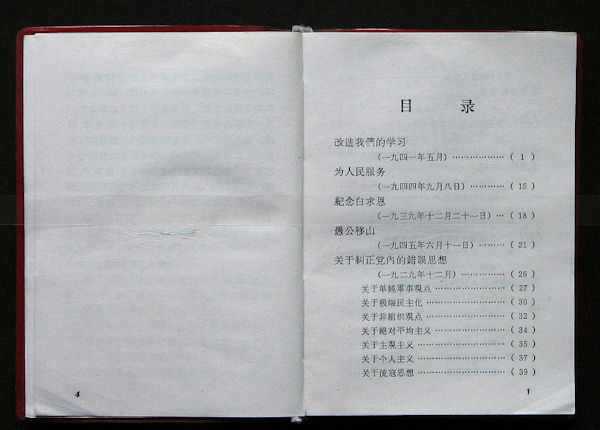 目 录
改造我們的学习
(一九四一年五月) ……………… ( 1 )
为人民服务
(一九四四年九月八日) ……… ( 15 )
紀念白求恩
(一九三九年十二月二十一日) … ( 18 )
愚公移山
(一九四五年六月十一日) …… ( 21 )
关于糾正党內的錯誤思想
(一九二九年十二月) ………… ( 26 )
关于单純軍事观点 ………………… ( 27 )
关于极端民主化 …………………… ( 30 )
关于非組织观点 …………………… ( 32 )
关于絕对平均主义 ………………… ( 34 )
关于主观主义 ……………………… ( 35 )
关于个人主义 ……………………… ( 37 )
关于流寇思想 ……………………… ( 39 )
4
1